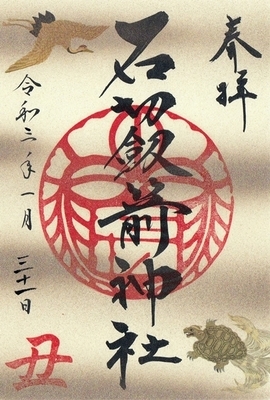 奉拝
石切劔箭神社
令和三年一月三十一日
丑